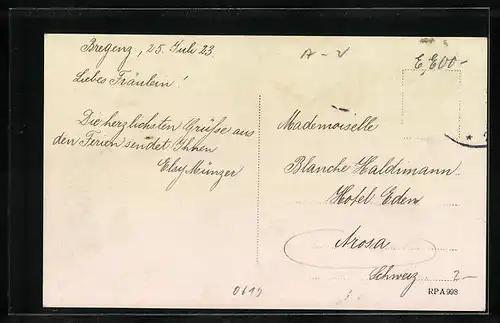 Bregenz, 25. Juli 23.
Liebes Fräulein!
Die herzlichsten Grüße aus
den Ferien sendet Ihnen
Elsy Münzer
A-V
Mademoiselle
Blanche Haldimann
Hotel Eden
Arosa
Schweiz.
2-
0619
RPA 993